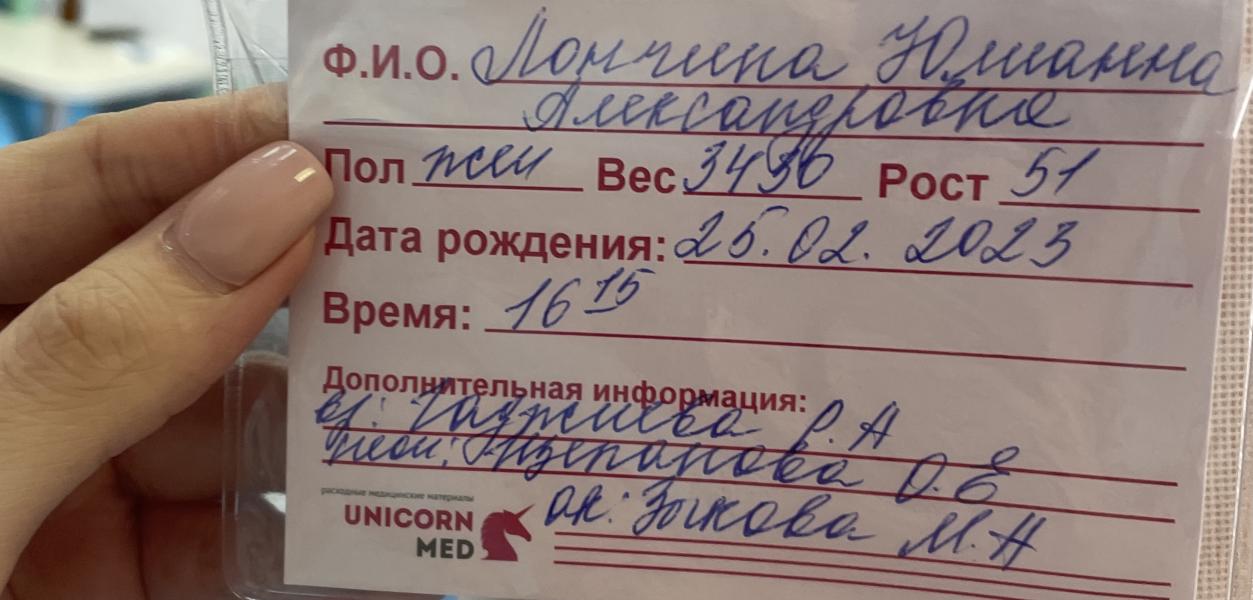 Ф.И.О. Лончина Юлианна
Александровна
Пол жен Вес 3430 Рост 51
Дата рождения: 25.02.2023
Время: 16 15
Дополнительная информация:
вр: Гаджиева Р. А
неон: О. Е
ак: Зыкова М. Н
расходные медицинские материалы
UNICORN
MED